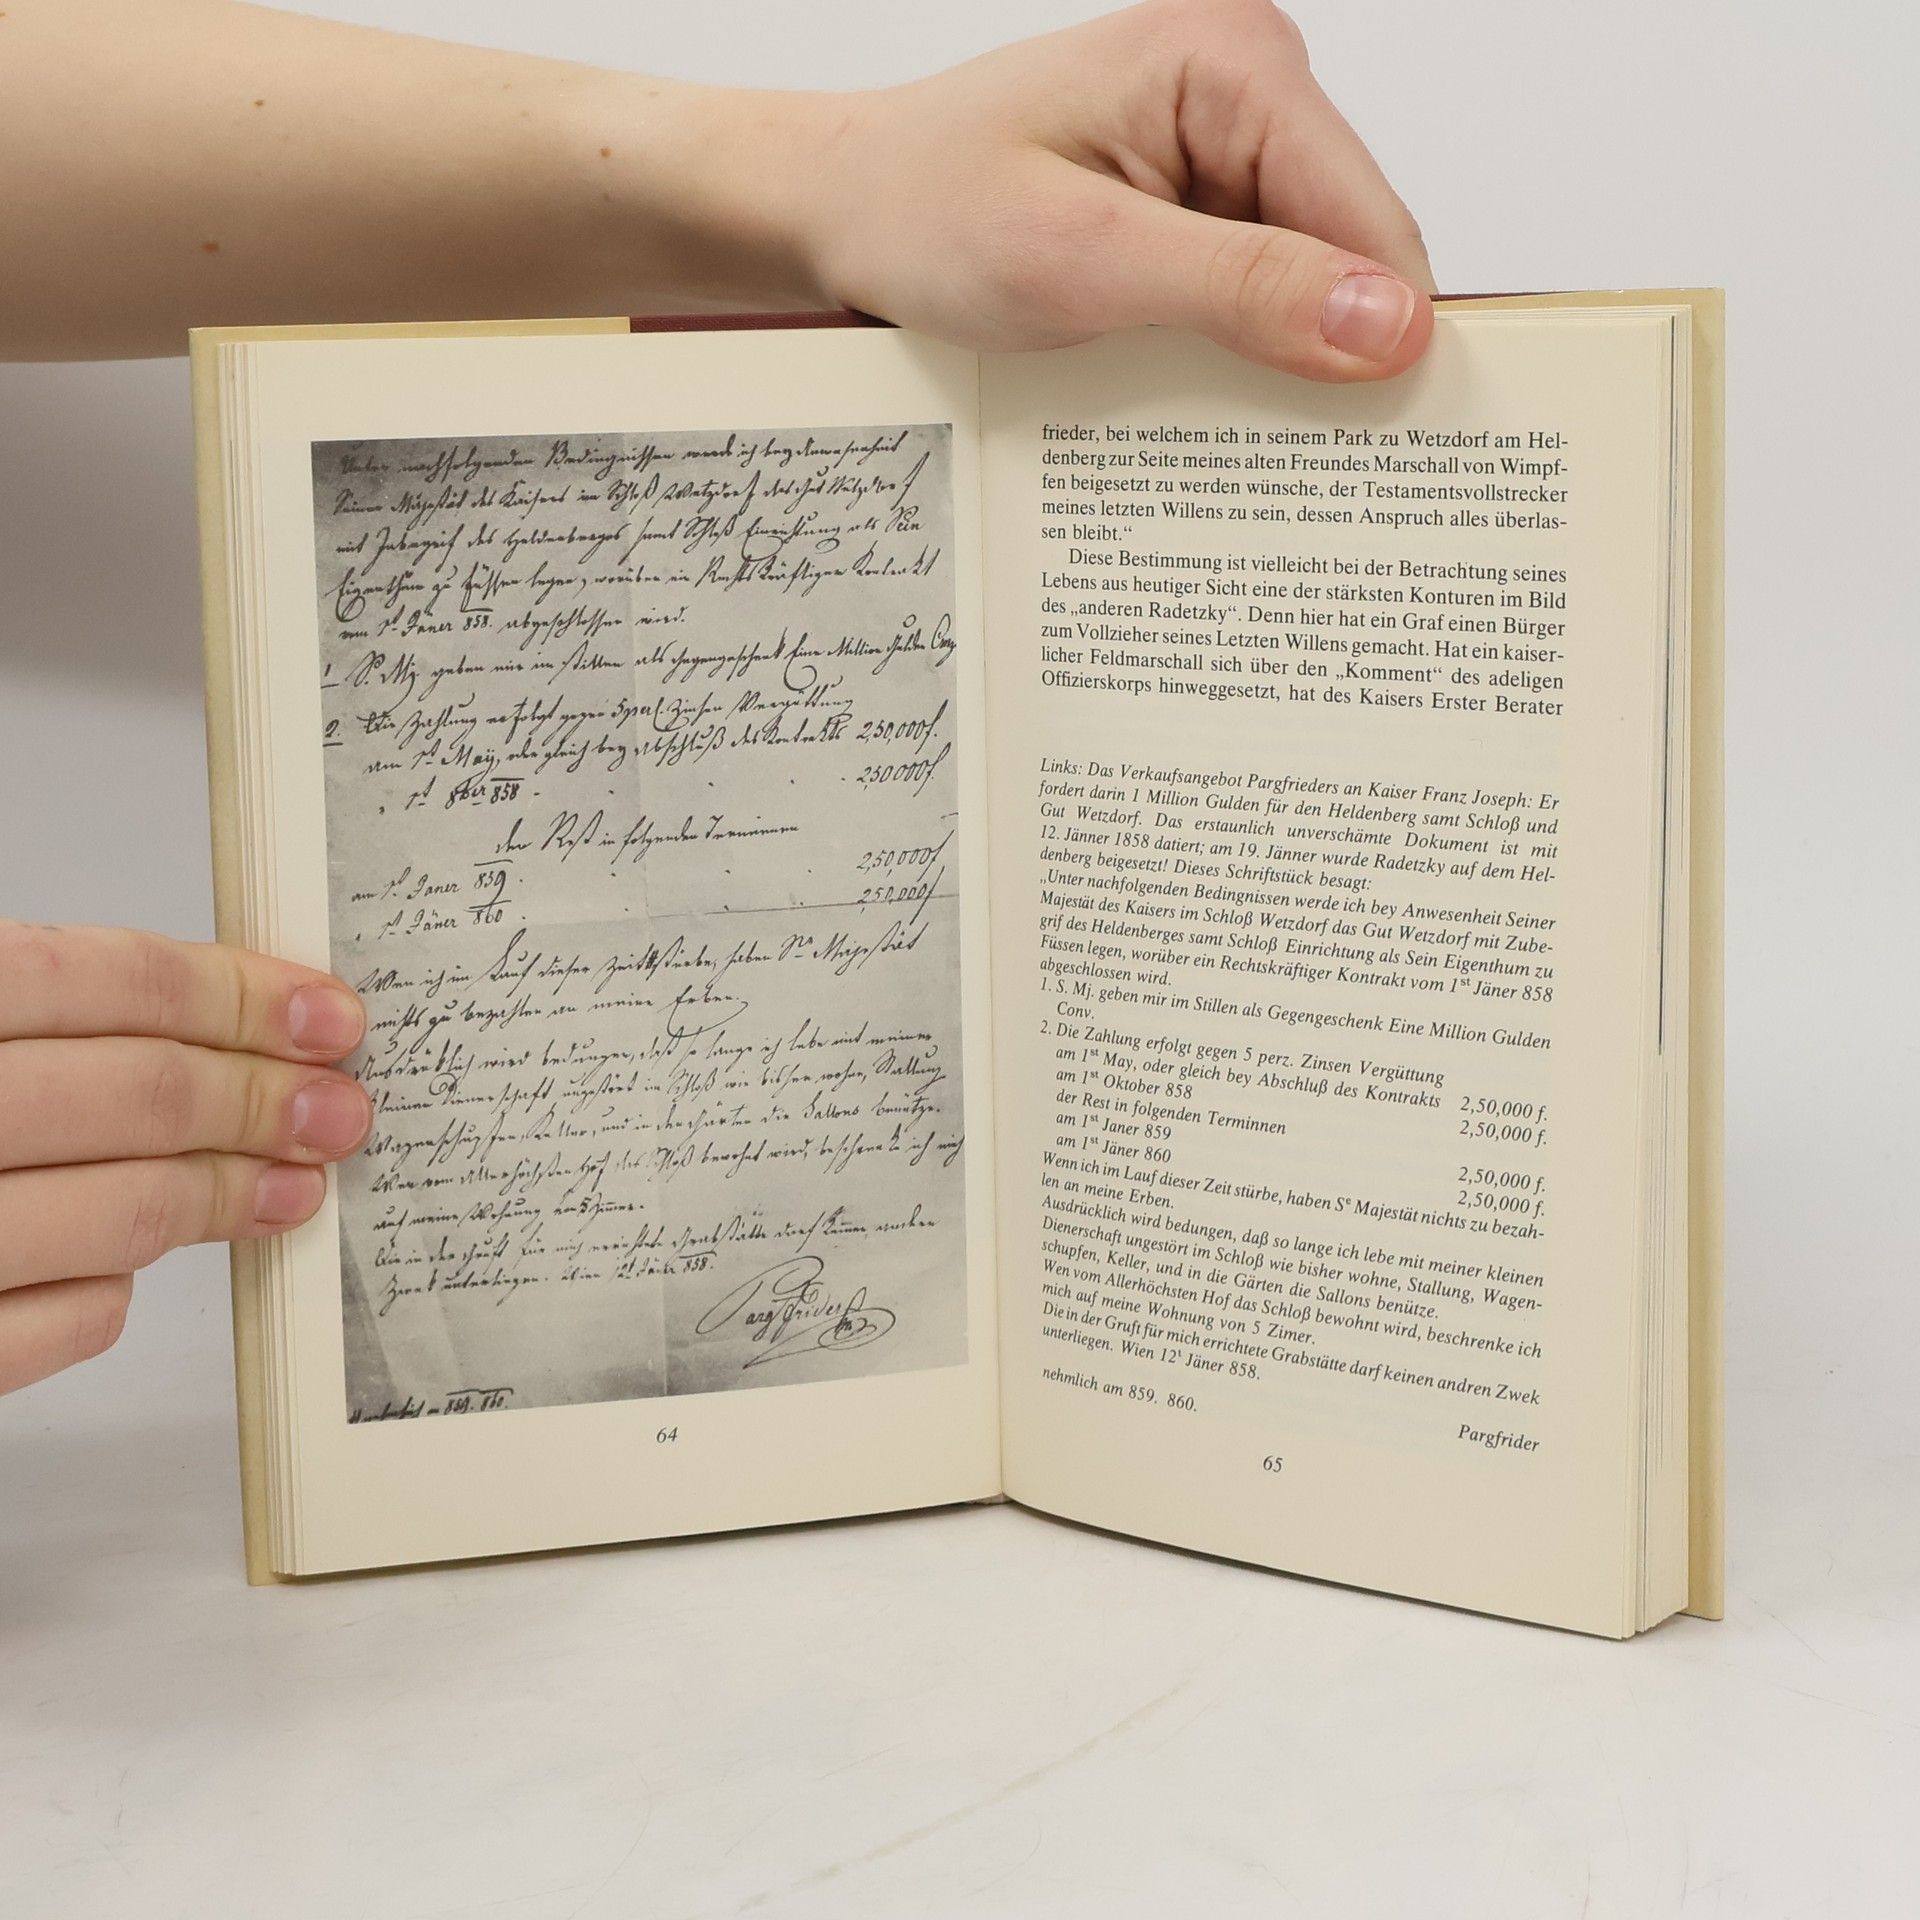 Unter nachfolgenden Bedingnissen werde ich bey Anwesenheit
Seiner Majestät des Kaisers im Schloß Wetzdorf das Gut Wetzdorf
mit Zubegrif des Heldenberges samt Schloß Einrichtung als Sein
Eigenthum zu Füssen legen, worüber ein Rechtskräftiger Kontrakt
vom 1st Jäner 858. abgeschlossen wird.
1 S. Mj. geben mir im Stillen als Gegengeschenk Eine Million Gulden Conv
2. Die Zahlung erfolgt gegen 5 perz. Zinsen Vergüttung
am 1st May, oder gleich bey Abschluß des Kontrakts 2,50,000f.
" 1st 8ber 858 - 2,50,000f.
der Rest in folgenden Terminnen
am 1st Janer 859 . 2,50,000f
" 1st Jäner 860 . 2,50,000f
Wen ich im Lauf dieser Zeit stürbe, haben Se Majestät
nichts zu bezahlen an meine Erben.
Ausdrüklich wird bedungen, daß so lange ich lebe mit meiner
kleinen Dienerschaft ungestört im Schloß wie bisher wohne, Stallung
Wagenschupfen, Keller, und in den Gärten die Sallons benütze.
Wen vom Allerhöchsten Hof das Schloß bewohnt wird, beschrenke ich mich
auf meine Wohnung von 5 Zimer.
Die in der Gruft für mich errichtete Grabstätte darf keinen andren
Zwek unterliegen. Wien 12t Jäner 858.
Pargfrider
859. 860.
64
frieder, bei welchem ich in seinem Park zu Wetzdorf am Hel-
denberg zur Seite meines alten Freundes Marschall von Wimpf-
fen beigesetzt zu werden wünsche, der Testamentsvollstrecker
meines letzten Willens zu sein, dessen Anspruch alles überlas-
sen bleibt.“
Diese Bestimmung ist vielleicht bei der Betrachtung seines
Lebens aus heutiger Sicht eine der stärksten Konturen im Bild
des „anderen Radetzky“. Denn hier hat ein Graf einen Bürger
zum Vollzieher seines Letzten Willens gemacht. Hat ein kaiser-
licher Feldmarschall sich über den „Komment“ des adeligen
Offizierskorps hinweggesetzt, hat des Kaisers Erster Berater
Links: Das Verkaufsangebot Pargfrieders an Kaiser Franz Joseph: Er
fordert darin 1 Million Gulden für den Heldenberg samt Schloß und
Gut Wetzdorf. Das erstaunlich unverschämte Dokument ist mit
12. Jänner 1858 datiert; am 19. Jänner wurde Radetzky auf dem Hel-
denberg beigesetzt! Dieses Schriftstück besagt:
„Unter nachfolgenden Bedingnissen werde ich bey Anwesenheit Seiner
Majestät des Kaisers im Schloß Wetzdorf das Gut Wetzdorf mit Zube-
grif des Heldenberges samt Schloß Einrichtung als Sein Eigenthum zu
Füssen legen, worüber ein Rechtskräftiger Kontrakt vom 1st Jäner 858
abgeschlossen wird.
1. S. Mj. geben mir im Stillen als Gegengeschenk Eine Million Gulden
Conv.
2. Die Zahlung erfolgt gegen 5 perz. Zinsen Vergüttung
am 1st May, oder gleich bey Abschluß des Kontrakts 2,50,000 f.
am 1st Oktober 858 2,50,000 f.
der Rest in folgenden Terminnen
am 1st Janer 859 2,50,000 f.
am 1st Jäner 860 2,50,000 f.
Wenn ich im Lauf dieser Zeit stürbe, haben Se Majestät nichts zu bezah-
len an meine Erben.
Ausdrücklich wird bedungen, daß so lange ich lebe mit meiner kleinen
Dienerschaft ungestört im Schloß wie bisher wohne, Stallung, Wagen-
schupfen, Keller, und in die Gärten die Sallons benütze.
Wen vom Allerhöchsten Hof das Schloß bewohnt wird, beschrenke ich
mich auf meine Wohnung von 5 Zimer.
Die in der Gruft für mich errichtete Grabstätte darf keinen andren Zwek
unterliegen. Wien 12t Jäner 858.
nehmlich am 859. 860.
Pargfrider
65